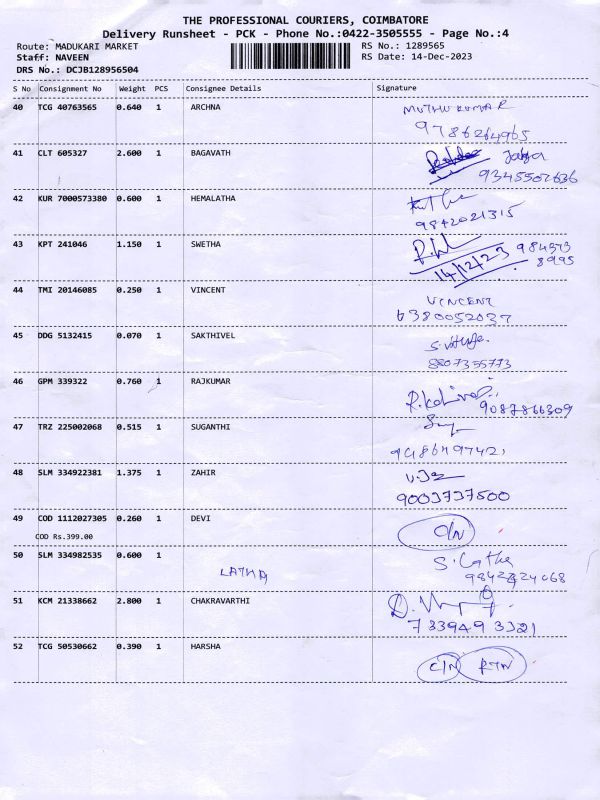 THE PROFESSIONAL COURIERS, COIMBATORE
Delivery Runsheet - PCK - Phone No.:0422-3505555 - Page No.:4
Route: MADUKARI MARKET RS No.: 1289565
Staff: NAVEEN RS Date: 14-Dec-2023
DRS No.: DCJB128956504
S No Consignment No Weight PCS Consignee Details Signature
40 TCG 40763565 0.640 1 ARCHNA MUTHU KUMAR
9786264965
41 CLT 605327 2.600 1 BAGAVATH
9345502636
42 KUR 7000573380 0.600 1 HEMALATHA
9842021315
43 KPT 241046 1.150 1 SWETHA 984373
14/12/23 8995
44 TMI 20146085 0.250 1 VINCENT VINCENT
6380052037
45 DDG 5132415 0.070 1 SAKTHIVEL
8807355773
46 GPM 339322 0.760 1 RAJKUMAR
9087866309
47 TRZ 225002068 0.515 1 SUGANTHI
48 SLM 334922381 1.375 1 ZAHIR
9003737500
49 COD 1112027305 0.260 1 DEVI C/N
COD Rs.399.00
50 SLM 334982535 0.600 1 S. Latha
LATHA
51 KCM 21338662 2.800 1 CHAKRAVARTHI
7339493321
52 TCG 50530662 0.390 1 HARSHA C/N RTN